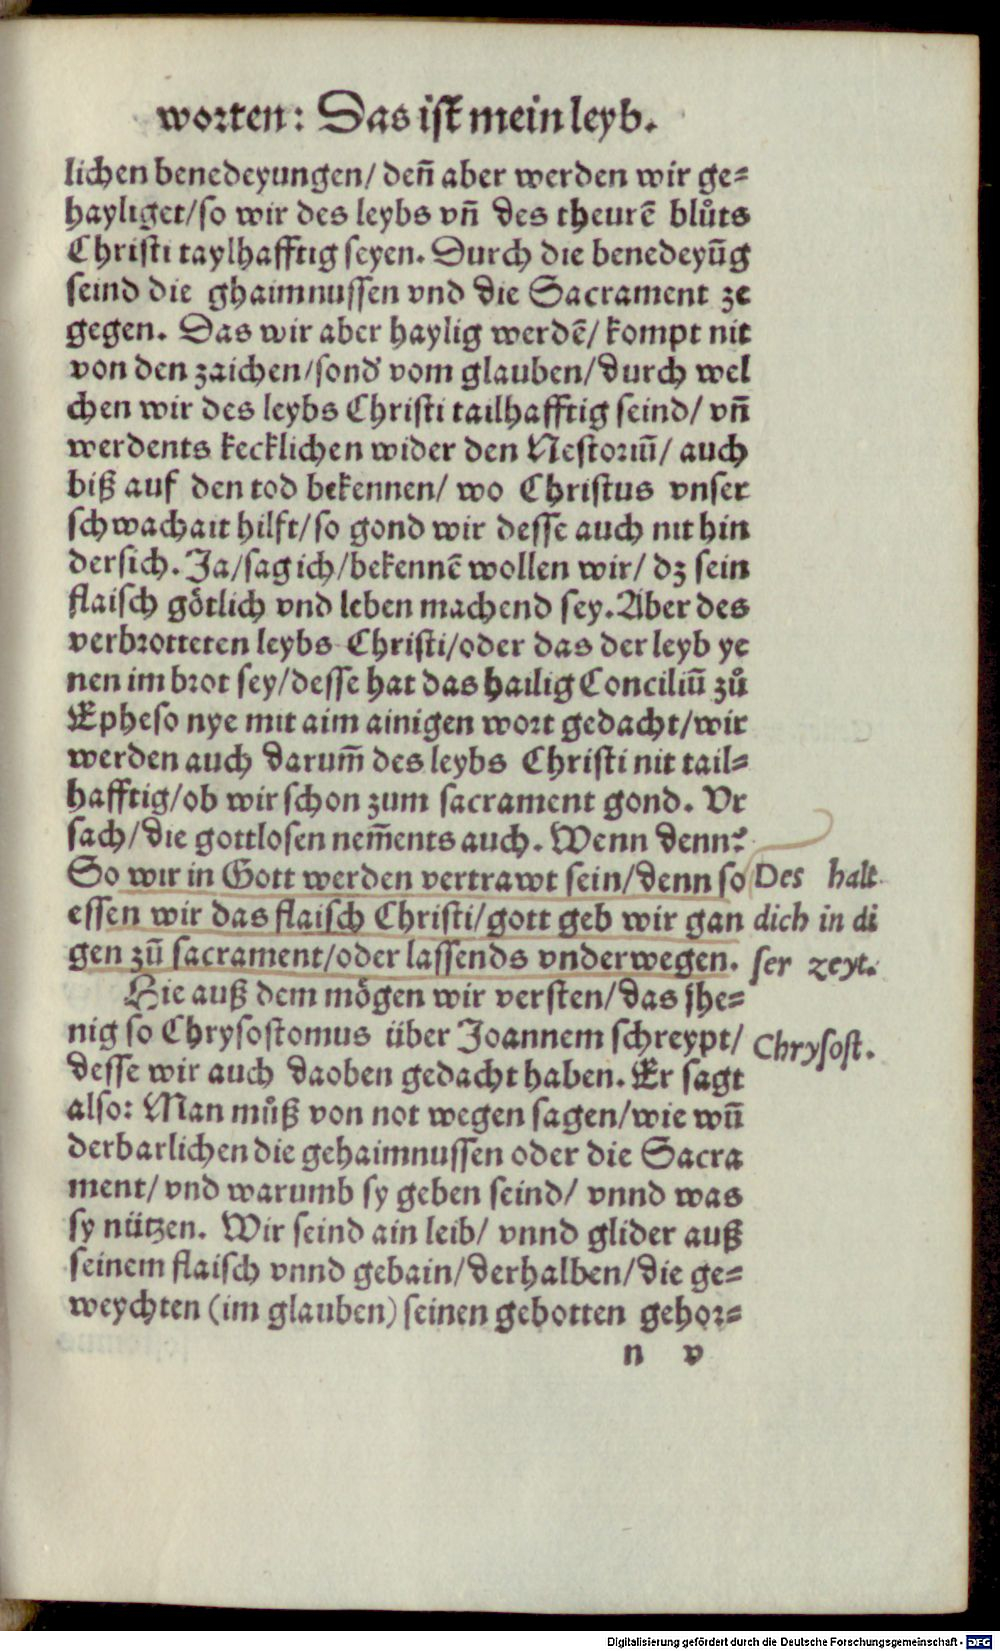 worten: Das ist mein leyb.
lichen benedeyungen/ deñ aber werden wir ge⸗
hayliget/so wir des leybs vñ des theurē blůts
Christi taylhafftig seyen. Durch die benedeyūg
seind die ghaimnussen vnd die Sacrament ze
gegen. Das wir aber haylig werdē/ kompt nit
von den zaichen/sond' vom glauben/durch wel
chen wir des leybs Christi tailhafftig seind/ vñ
werdents kecklichen wider den Nestoriū/ auch
biß auf den tod bekennen/ wo Christus vnser
schwachait hilft/so gond wir desse auch nit hin
dersich. Ja/sag ich/bekennē wollen wir/ dz sein
flaisch götlich vnd leben machend sey. Aber des
verbrotteten leybs Christi/oder das der leyb ye
nen im brot sey/desse hat das hailig Conciliū zů
Epheso nye mit aim ainigen wort gedacht/wir
werden auch darum̄ des leybs Christi nit tail⸗
hafftig/ob wir schon zum sacrament gond. Vr
sach/die gottlosen nem̄ents auch. Wenn denn?
So wir in Gott werden vertrawt sein/denn so
essen wir das flaisch Christi/gott geb wir gan
gen zū sacrament/oder lassends vnderwegen.
Des halt
dich in di
ser zeyt.
Hie auß dem mögen wir versten/das jhe⸗
nig so Chrysostomus über Joannem schreypt/
Chrysost.
desse wir auch daoben gedacht haben. Er sagt
also: Man můß von not wegen sagen/wie wū
derbarlichen die gehaimnussen oder die Sacra
ment/ vnd warumb sy geben seind/ vnnd was
sy nützen. Wir seind ain leib/ vnnd glider auß
seinem flaisch vnnd gebain/derhalben/die ge⸗
weychten (im glauben) seinen gebotten gehor⸗
n v
Digitalisierung gefördert durch die Deutsche Forschungsgemeinschaft - DFG